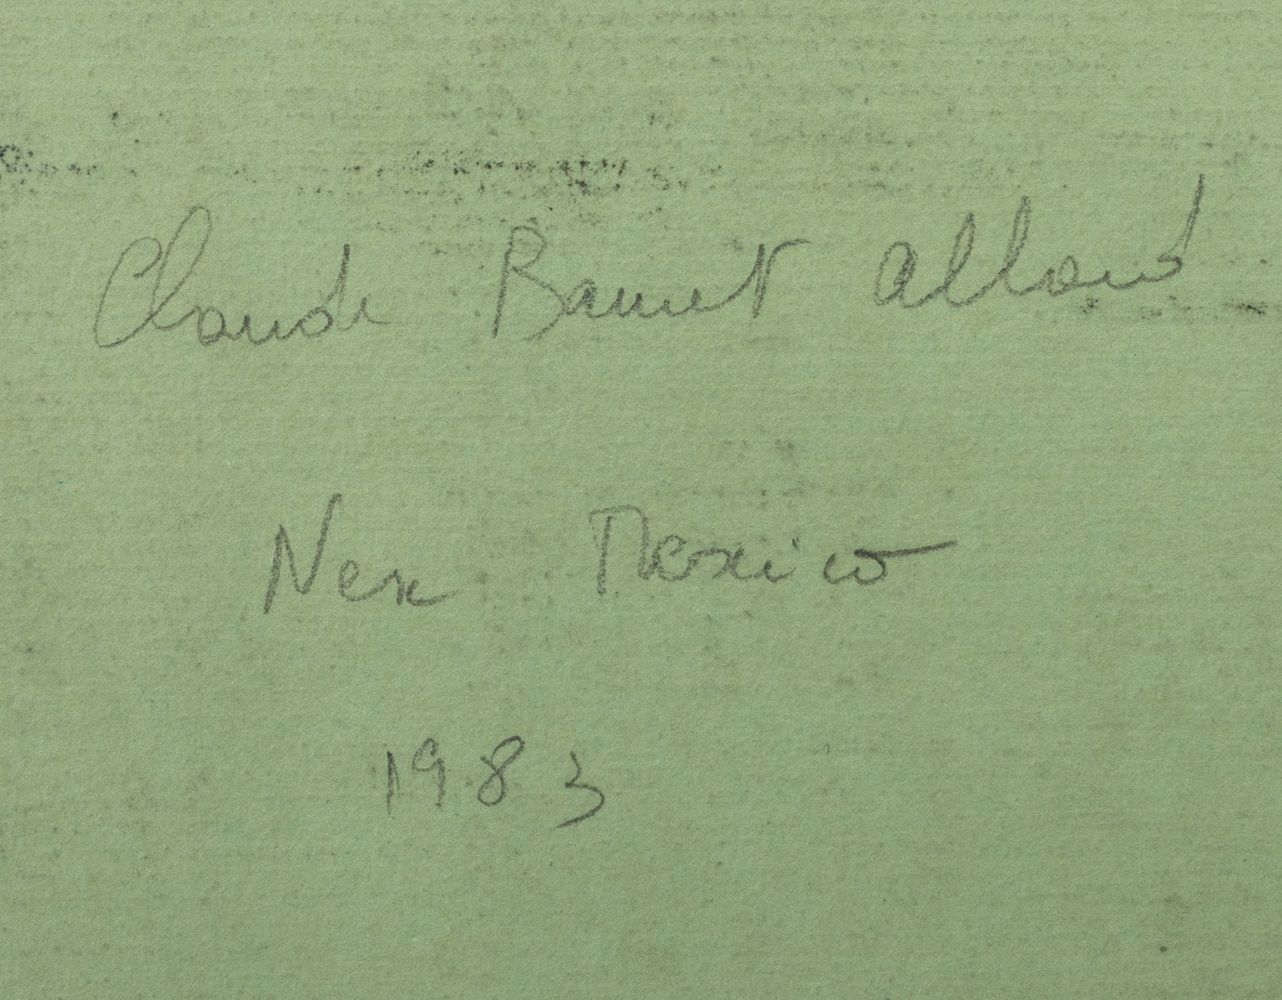 Claude Bauret Allard
New Mexico
1983